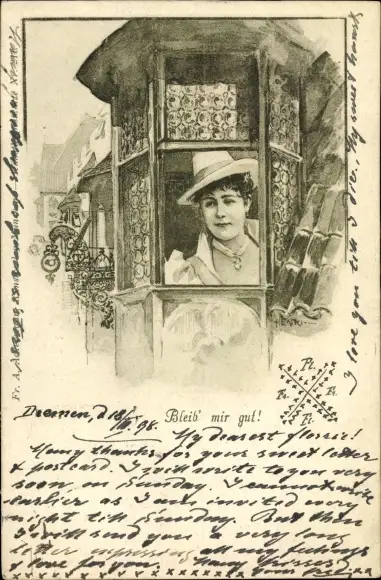 I love you till I die. My sweet heart
HENRI
Pt.
Bremen, d 18/
III. 98.
Bleib' mir gut!
My dearest Flossie!
Many thanks for your sweet letter
& postcard. I will write to you very
soon, on Sunday. I cannot write
earlier as I am invited every
night till Sunday. But then
I will send you a very long
letter expressing all my feelings
& love for you. Many kisses